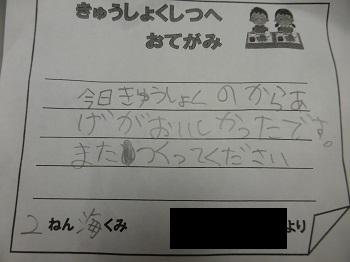 きゅうしょくしつへ
おてがみ
今日きゅうしょくのからあ
げがおいしかったです。
またつくってください
2ねん海くみ
より